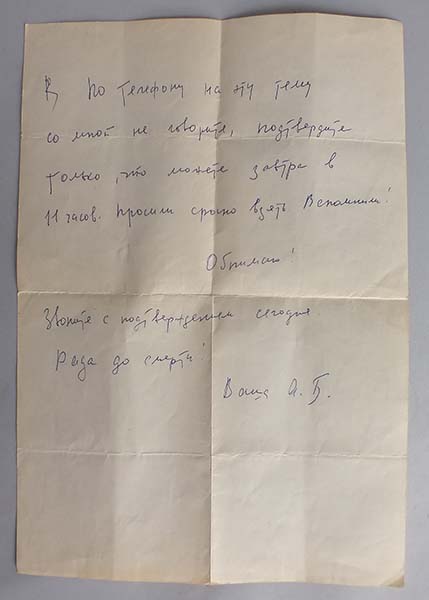 По телефону на эту тему
со мной не говорите, подтвердите
только, что можете завтра в
11 часов. Просили срочно взять Вспомним!
Обнимаю!
Звоните с подтверждением сегодня
Рада до смерти!
Ваша А. Б.